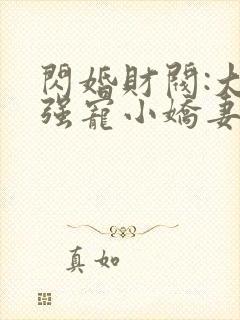 閃婚財閥:大
强寵小嬌妻
真如